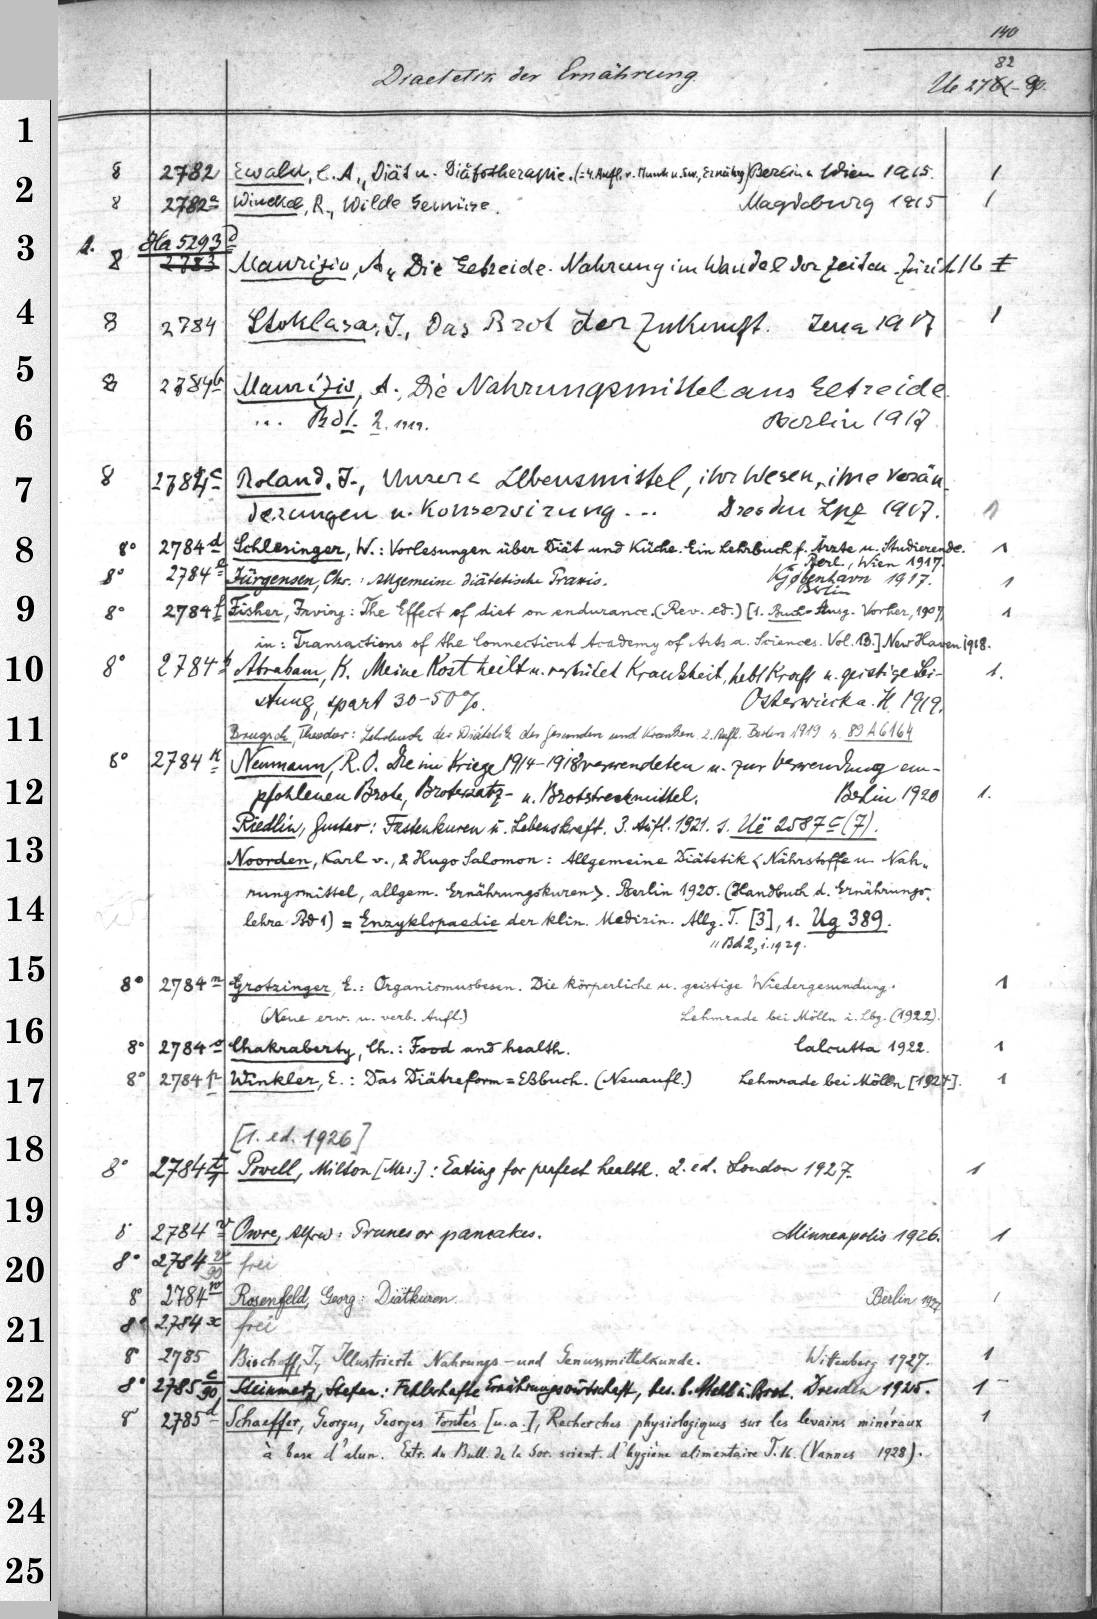 140
82
Diaetetik der Ernährung
Ue 278 - 90.
1
8 2782 Ewald, C. A., Diät u. Diätotherapie. (=4. Aufl. v. Munk u. Ew., Ernährg) Berlin u Wien 1915. 1
2
8 2782a Winckel, R., Wilde Gemüse. Magdeburg 1915 1
3
1. Ha 5293 d
8 2783 Maurizio, A., Die Getreide-Nahrung im Wandel der Zeiten. Zürich 16 I
4
8 2784 Stoklasa, J., Das Brot der Zukunft. Jena 1917 1
5
8 2784b Maurizio, A., Die Nahrungsmittel aus Getreide
6
... Bd 1. 2. 1919. Berlin 1917
7
8 2784c Roland, J., Unsere Lebensmittel, ihr Wesen, ihre Verän-
derungen u. Konservirung ... Dresden Lpz 1917. 1
8
8° 2784d Schlesinger, W.: Vorlesungen über Diät und Küche. Ein Lehrbuch f. Ärzte u. Studierende. 1
Berl., Wien 1917.
8° 2784e Jürgensen, Chr.: Allgemeine diätetische Praxis. Kjøbenhavn 1917. 1
Berlin
9
8° 2784f Fisher, Irving: The Effect of diet on endurance. (Rev. ed.) [1. Buch-Ausg. Vorher, 1907, 1
in: Transactions of the Connecticut Academy of Arts a. Sciences. Vol. 13.] New Haven 1918.
10
8° 2784h Abraham, K. Meine Kost heilt u. verhütet Krankheit, hebt Kraft u. geistige Lei- 1.
stung, spart 30-50%. Osterwieck a. H. 1919.
11
Brugsch, Theodor: Lehrbuch der Diätetik des Gesunden und Kranken. 2. Aufl. Berlin 1919 s. 89 A 6164
8° 2784k Neumann, R. O. Die im Kriege 1914-1918 verwendeten u. zur Verwendung em-
12
pfohlenen Brote, Brotersatz- u. Brotstreckmittel. Berlin 1920 1.
Riedlin, Gustav: Fastenkuren u. Lebenskraft. 3. Aufl. 1921. s. Uë 2587c (7).
13
Noorden, Karl v., & Hugo Salomon: Allgemeine Diätetik <Nährstoffe u. Nah-
rungsmittel, allgem. Ernährungskuren>. Berlin 1920. (Handbuch d. Ernährungs-
14
lehre Bd 1) = Enzyklopaedie der klin. Medizin. Allg. T. [3], 1. Ug 389.
" Bd 2, i. 1929.
15
8° 2784n Grotzinger, E.: Organismusbesen. Die körperliche u. geistige Wiedergesundung. 1
(Neue erw. u. verb. Aufl.) Lehmrade bei Mölln i. Lbg. (1922).
16
8° 2784o Chakraberty, Ch.: Food and health. Calcutta 1922. 1
17
8° 2784p Winkler, E.: Das Diätreform=Eßbuch. (Neuaufl.) Lehmrade bei Mölln [1924]. 1
18
[1. ed. 1926]
8° 2784t Powell, Milton [Mes.]: Eating for perfect health. 2. ed. London 1927. 1
19
8 2784v Owre, Alfred: Prunes or pancakes. Minneapolis 1926. 1
20
8° 2784v/90 frei
8 2784w Rosenfeld, Georg: Diätkuren. Berlin 1927 1
21
8° 2784x frei
8° 2785 Bischoff, J., Illustrierte Nahrungs- und Genussmittelkunde. Wittenberg 1927. 1
22
8° 2785c/90 Steinmetz, Stefan: Fehlerhafte Ernährungswirtschaft, bes. b. Mehl u. Brot. Dresden 1925. 1
8° 2785d Schaeffer, Georges, Georges Fontès [u. a.], Recherches physiologiques sur les levains minéraux 1
23
à base d'alun. Extr. du Bull. de la Soc. scient. d'hygiène alimentaire T. 16. (Vannes 1928).
24
25